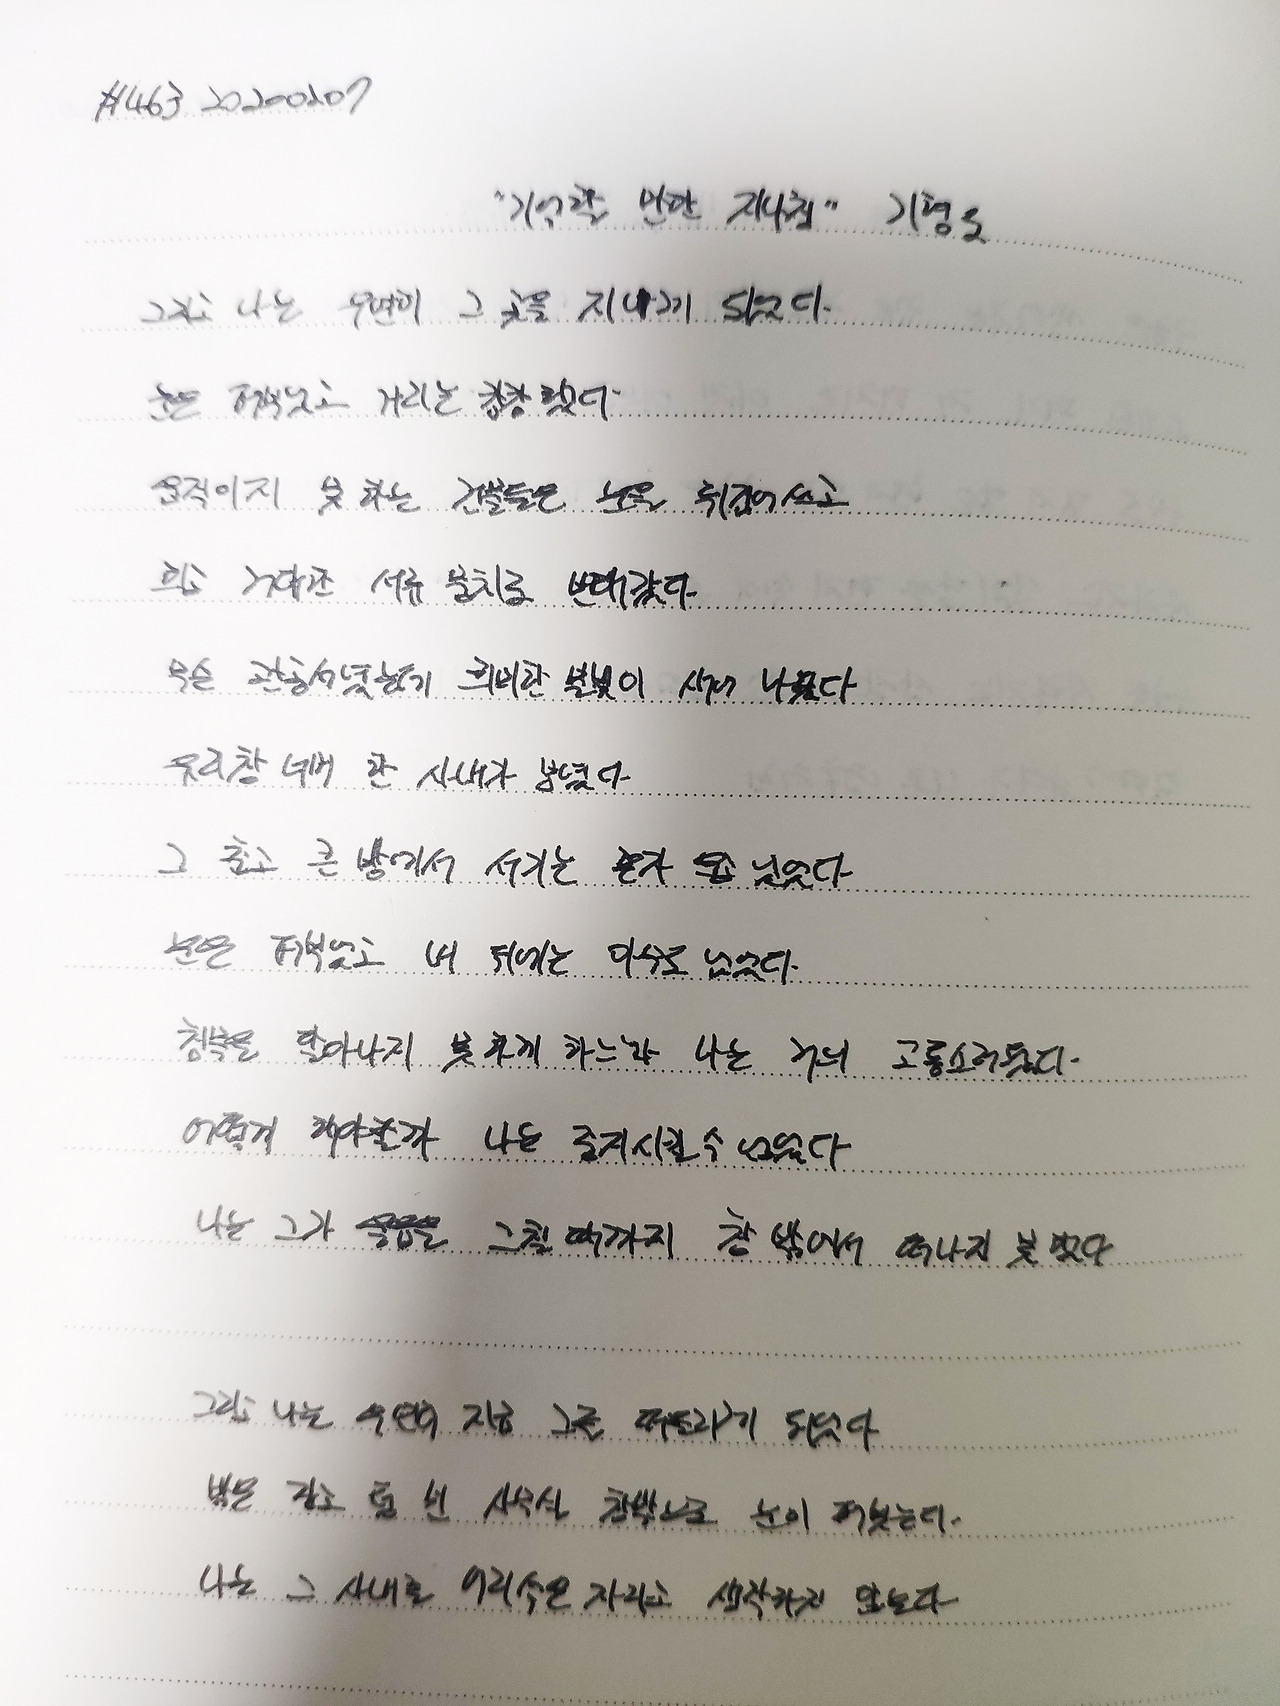 #1463 20200207
"기억할 만한 지나침" 기형도
그리고 나는 우연히 그 곳을 지나게 되었다.
눈은 퍼부었고 거리는 캄캄했다.
움직이지 못하는 건물들은 눈을 뒤집어쓰고
희고 거대한 서류 뭉치로 변해갔다.
무슨 관공서였는데 희미한 불빛이 새어 나왔다
유리창 너머 한 사내가 보였다.
그 춥고 큰 방에서 서기는 혼자 울고 있었다
눈은 퍼부었고 내 뒤에는 아무도 없었다.
침묵을 달아나지 못하게 하느라 나는 거의 고통스러웠다.
어떻게 해야할까 나는 중지시킬 수 없었다
나는 그가 울음을 그칠 때까지 창 밖에서 떠나지 못했다
그리고 나는 우연히 지금 그를 떠올리게 되었다
밖은 깊고 텅 빈 사무실 창밖으로 눈이 퍼붓는다.
나는 그 사내를 어리석은 자라고 생각하지 않는다